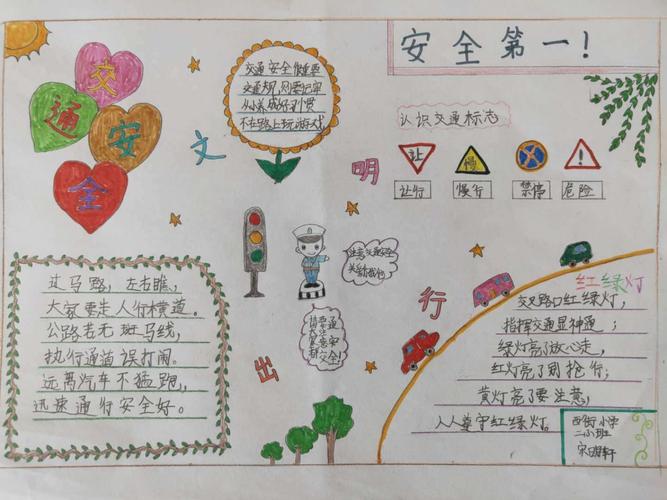 安全第一!
交通安全
交通安全很重要
交通规则要记牢
从小养成好习惯
不在路上玩游戏
认识交通标志
让
慢
!
让行
慢行
禁停
危险
文明出行
过马路,左右瞧,
大家要走人行横道。
公路若无斑马线,
执行通道误打闹。
远离汽车不猛跑,
迅速通行安全好。
注意交通安全
红绿灯
交叉路口红绿灯,
指挥交通显神通;
绿灯亮了放心走,
红灯亮了别抢行;
黄灯亮了要注意,
人人遵守红绿灯。
西街小学
二小班